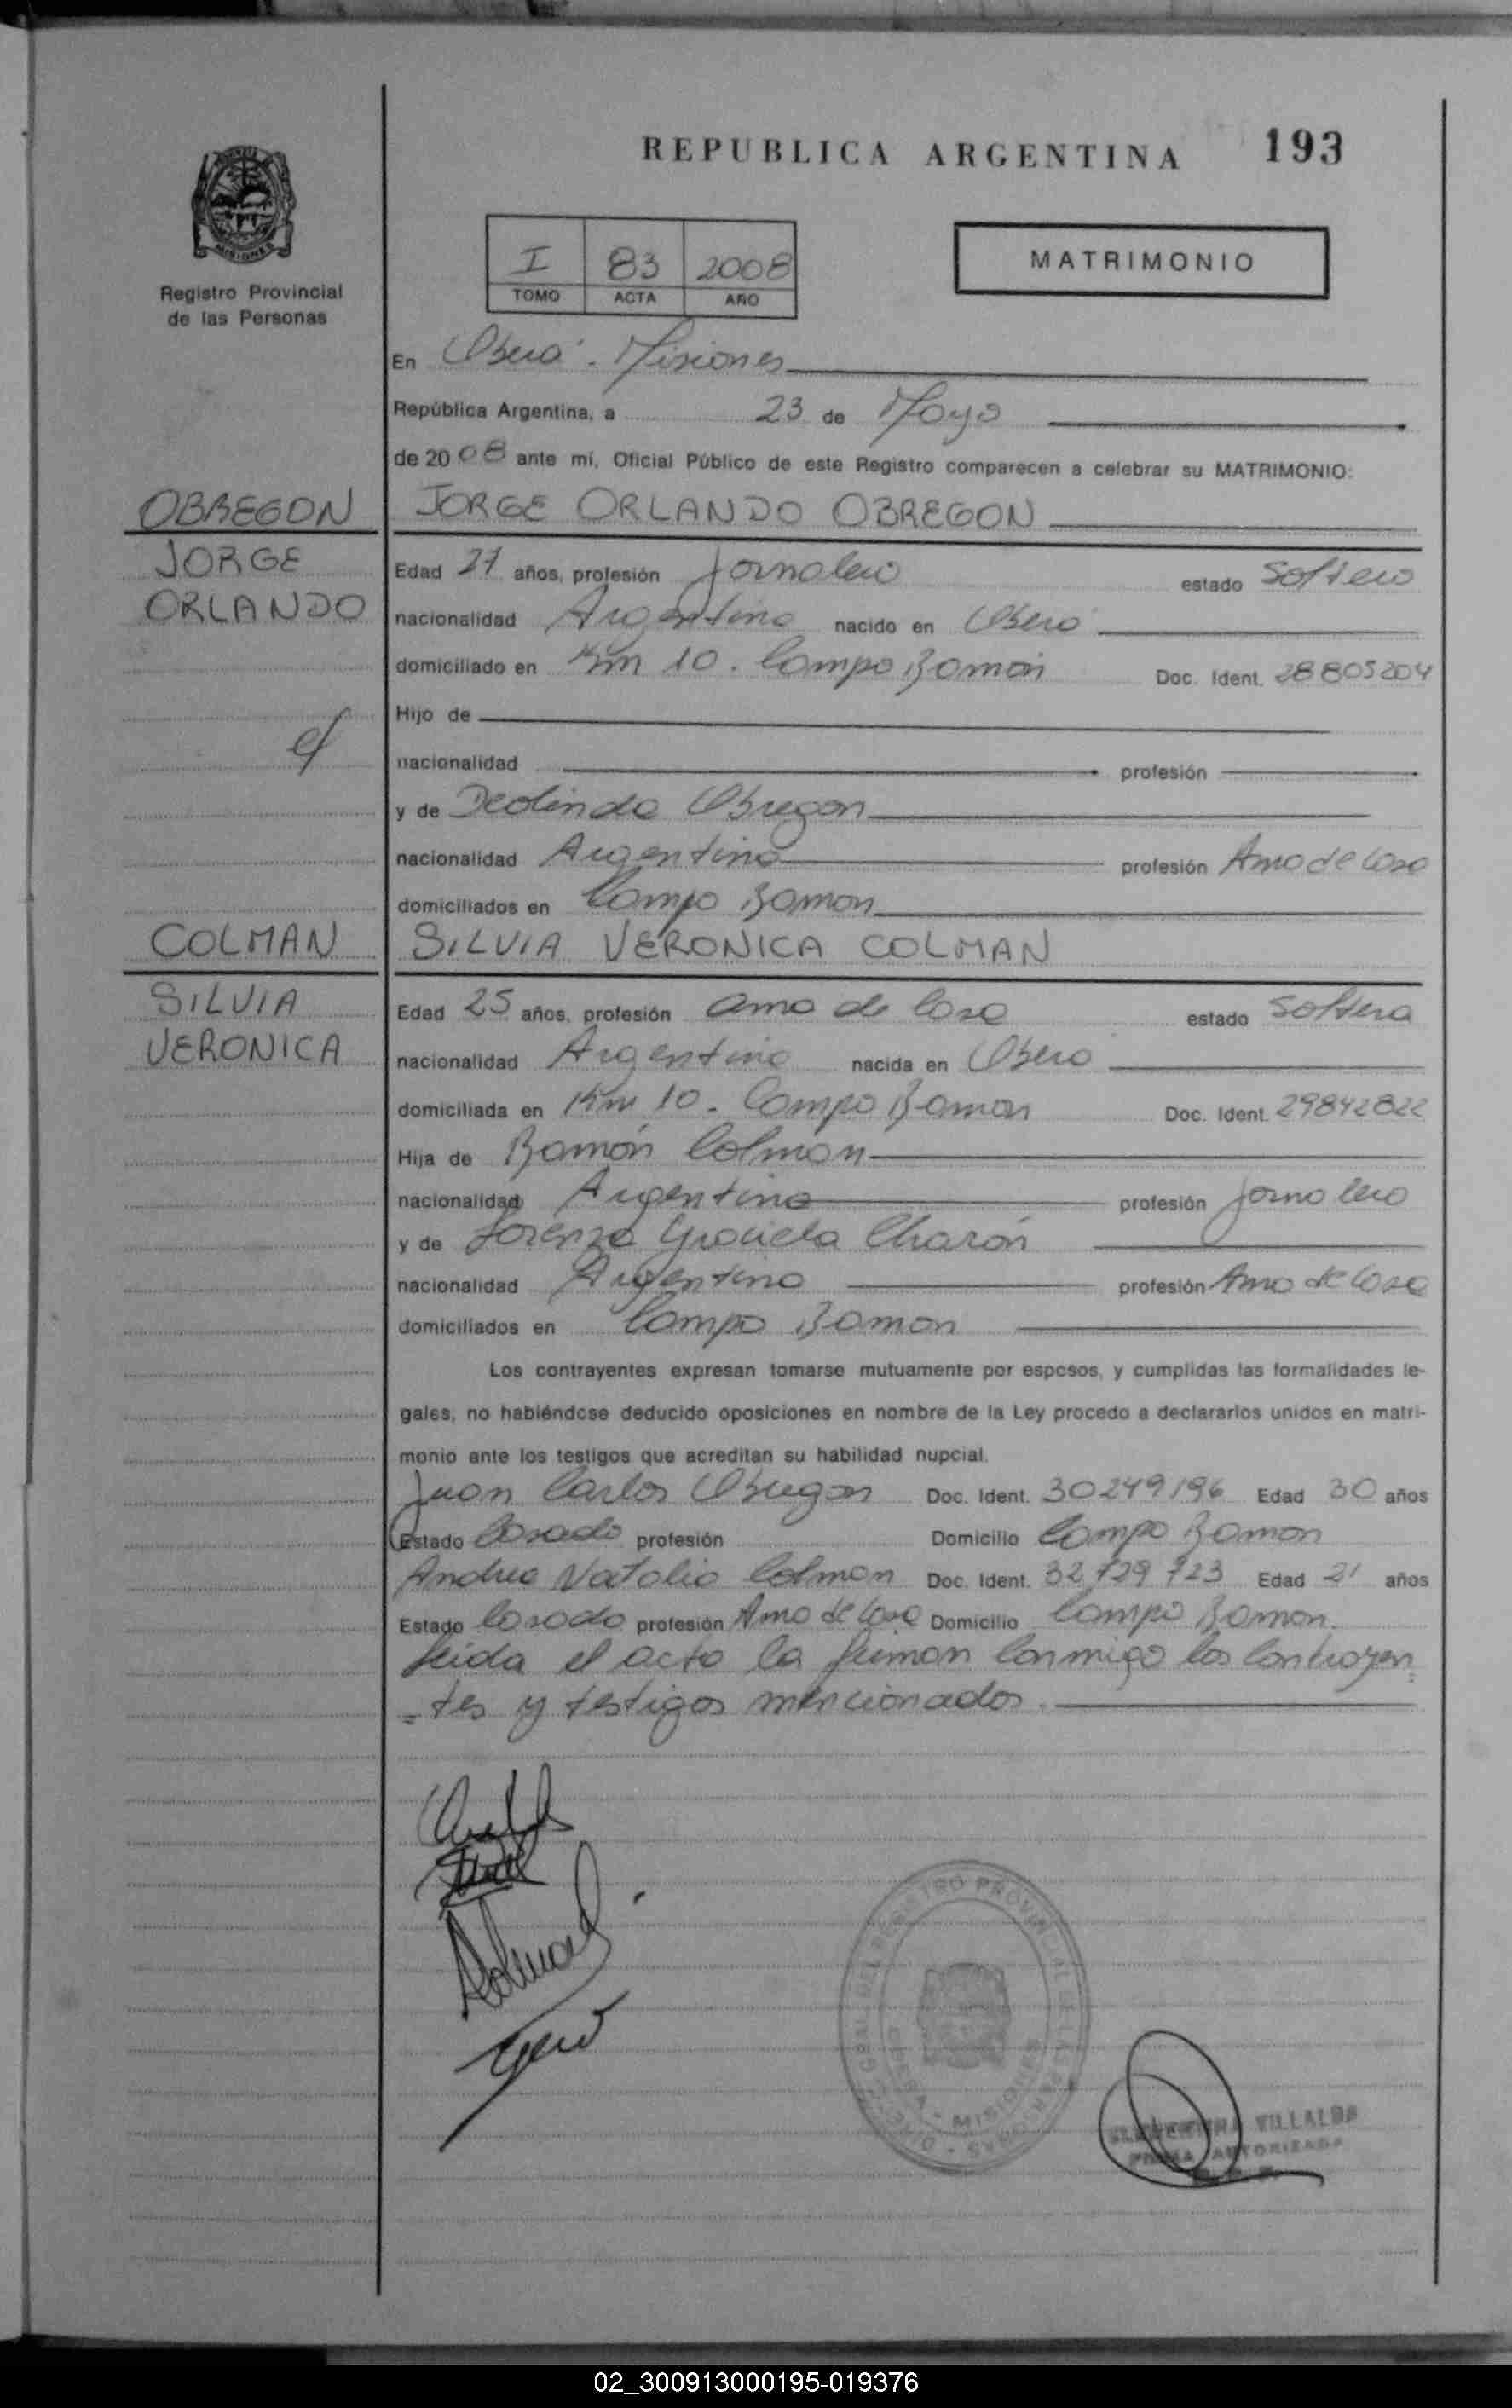 REPUBLICA ARGENTINA 193
MATRIMONIO
I 83 2008
TOMO ACTA AÑO
Registro Provincial
de las Personas
En Oberá - Misiones
República Argentina, a 23 de Mayo
de 2008 ante mí, Oficial Público de este Registro comparecen a celebrar su MATRIMONIO:
OBREGON JORGE ORLANDO OBREGON
JORGE Edad 27 años, profesión Jornalero estado Soltero
ORLANDO nacionalidad Argentina nacido en Oberá
domiciliado en Km 10. Campo Ramón Doc. Ident. 28805204
Hijo de
nacionalidad profesión
y de Deolinda Obregon
nacionalidad Argentina profesión Ama de Casa
domiciliados en Campo Ramon
COLMAN SILVIA VERONICA COLMAN
SILVIA Edad 25 años, profesión ama de Casa estado Soltera
VERONICA nacionalidad Argentina nacida en Oberá
domiciliada en Km 10. Campo Ramon Doc. Ident. 29842822
Hija de Ramón Colman
nacionalidad Argentina profesión Jornalero
y de Lorenza Graciela Charón
nacionalidad Argentina profesión Ama de Casa
domiciliados en Campo Ramon
Los contrayentes expresan tomarse mutuamente por esposos, y cumplidas las formalidades le-
gales, no habiéndose deducido oposiciones en nombre de la Ley procedo a declararlos unidos en matri-
monio ante los testigos que acreditan su habilidad nupcial.
Juan Carlos Obregon Doc. Ident. 30249196 Edad 30 años
Estado Casado profesión Domicilio Campo Ramon
Andrea Natalia Colman Doc. Ident. 32729723 Edad 21 años
Estado Casada profesión Ama de Casa Domicilio Campo Ramon.
Leida el acta la firman Conmigo los Contrayen
=tes y testigos mencionados.
VILLALBA
FIRMA AUTORIZADA
02_300913000195-019376